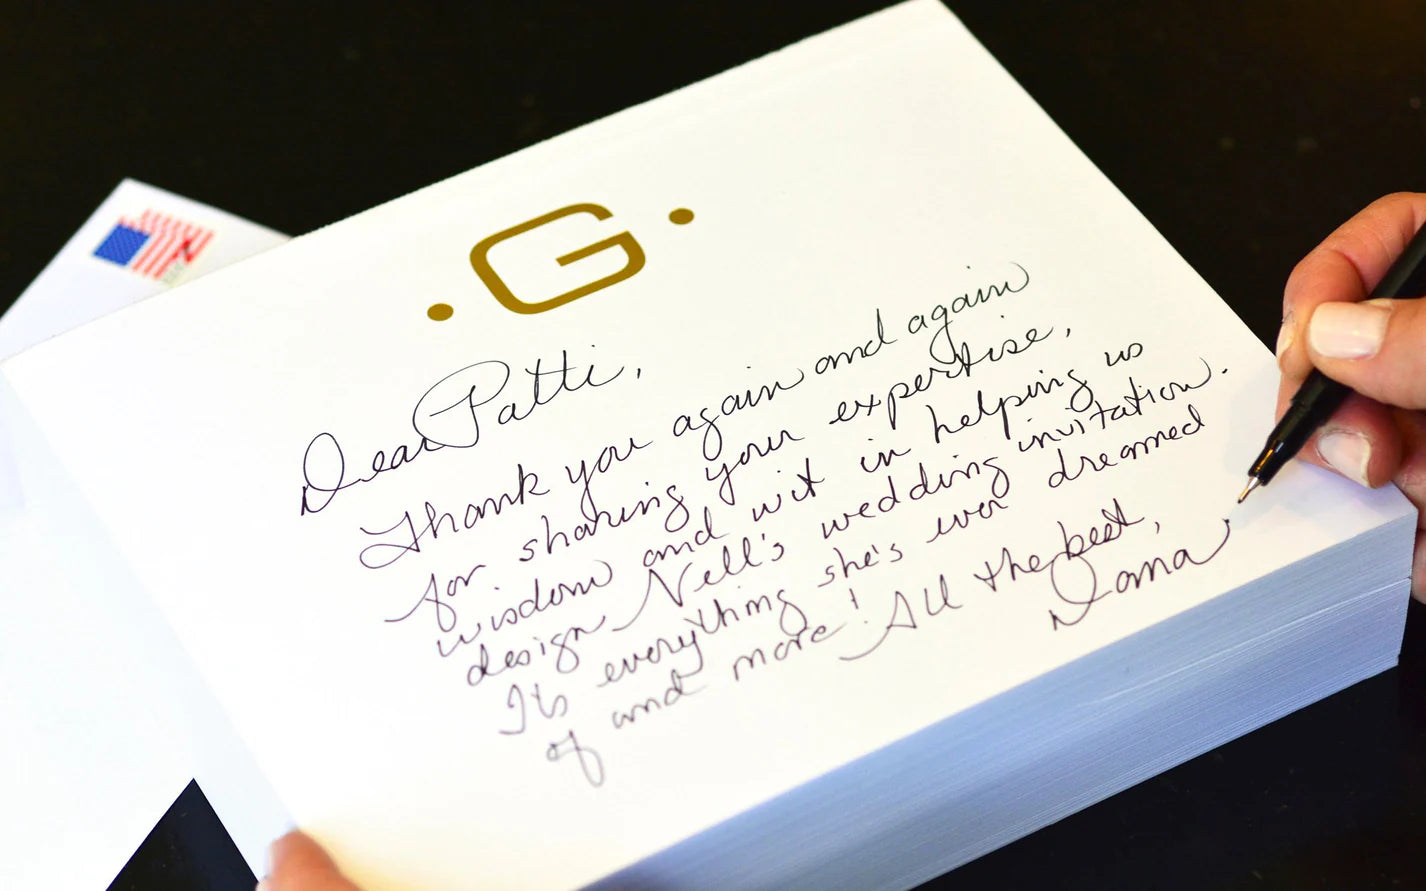 · G ·
Dear Patti,
Thank you again and again
for sharing your expertise,
wisdom and wit in helping us
design Nell's wedding invitation.
Its everything she's ever dreamed
of and more! All the best,
Dana